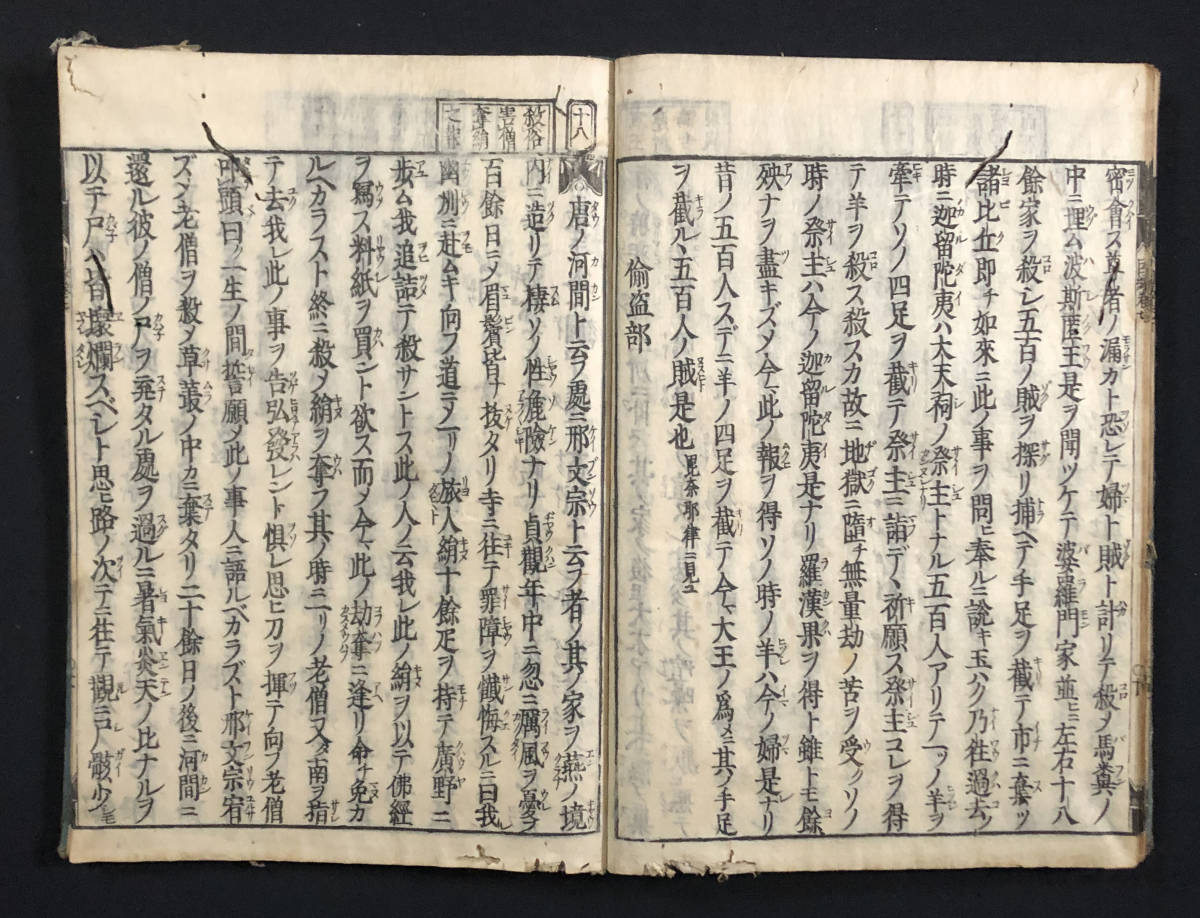 密會ス尊者ノ漏カト恐レテ婦ト賊ト計リテ殺メ馬糞ノ
中ニ埋ム波斯匿王是ヲ聞ツケテ婆羅門家並ヒニ左右十八
餘家ヲ殺シ五百ノ賊ヲ探リ捕ヘテ手足ヲ截テ市ニ棄ツ
諸比丘即チ如來ニ此ノ事ヲ問ヒ奉ルニ説キ玉ハク乃往過去ノ
時ニ迦留陀夷ハ大天祠ノ祭主トナル五百人アリテ一ツノ羊ヲ
牽テソノ四足ヲ截テ祭主ニ詣デヽ祈願ス祭主コレヲ得
テ羊ヲ殺ス殺スカ故ニ地獄ニ墮チ無量劫ノ苦ヲ受クソノ
時ノ祭主ハ今ノ迦留陀夷是ナリ羅漢果ヲ得ト雖トモ餘
殃ナヲ盡キズメ今此ノ報ヲ得ソノ時ノ羊ハ今ノ婦是ナリ
昔ノ五百人スデニ羊ノ四足ヲ截テ今マ大王ノ爲メニ其ノ手足
ヲ截ルヽ五百人ノ賊是也 毘奈耶律ニ見ユ
偷盗部
十八
殺俗
害僧
奪絹
之報
唐ノ河間ト云フ處ニ邢文宗ト云フ者ノ其ノ家ヲ燕ノ境
内ニ造リテ棲ソノ性麁險ナリ貞觀年中ニ忽ニ厲風ヲ憂フ
百餘日ニメ眉鬢皆ナ抜タリ寺ニ往テ罪障ヲ懺悔スルニ曰我レ
幽州ニ赴ムキ向フ道ニメ一リノ旅人絹十餘疋ヲ持テ廣野ニ
歩ム我追詰テ殺サントス此ノ人ノ云我レ此ノ絹ヲ以テ佛經
ヲ寫ス料紙ヲ買ント欲ス而メ今マ此ノ劫奪ニ逢リ命チ免カ
ルヘカラスト終ニ殺メ絹ヲ奪フ其ノ時ニ一リノ老僧又タ南ヲ指
テ去我レ此ノ事ヲ告弘發レント惧レ思ヒ刀ヲ揮テ向フ老僧
叩頭曰ク一生ノ間誓願メ此ノ事人ニ語ルベカラズト邢文宗宥
ズメ老僧ヲ殺メ草叢ノ中カニ棄タリ二十餘日ノ後ニ河間ニ
還ル彼ノ僧ノ尸ヲ棄タル處ヲ過ルニ暑氣炎天ノ比ナルヲ
以テ尸ハ皆壞爛スベレト思ヒ路ノ次テニ往テ觀ニ尸骸少モ